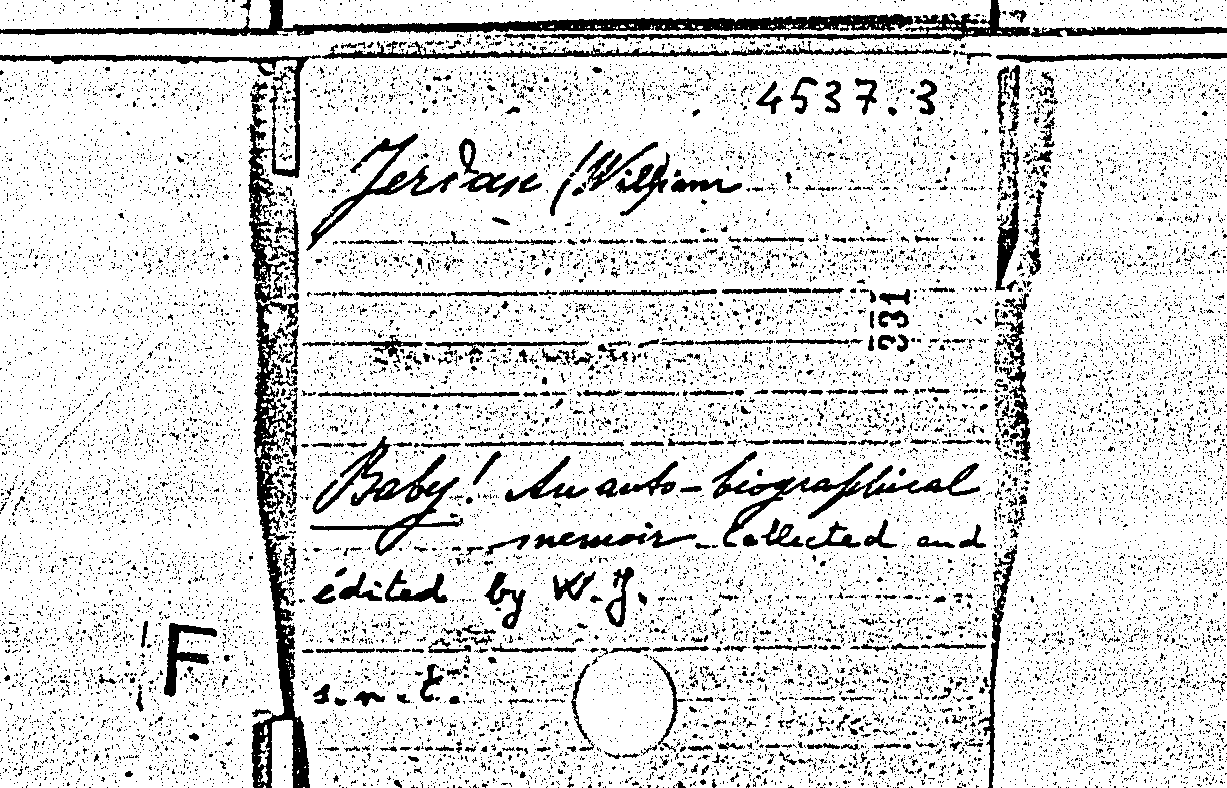 4537.3
Jerdan (William)
331
Baby! An auto-biographical
memoir. Collected and
édited by W.J.
F
s.n.t.